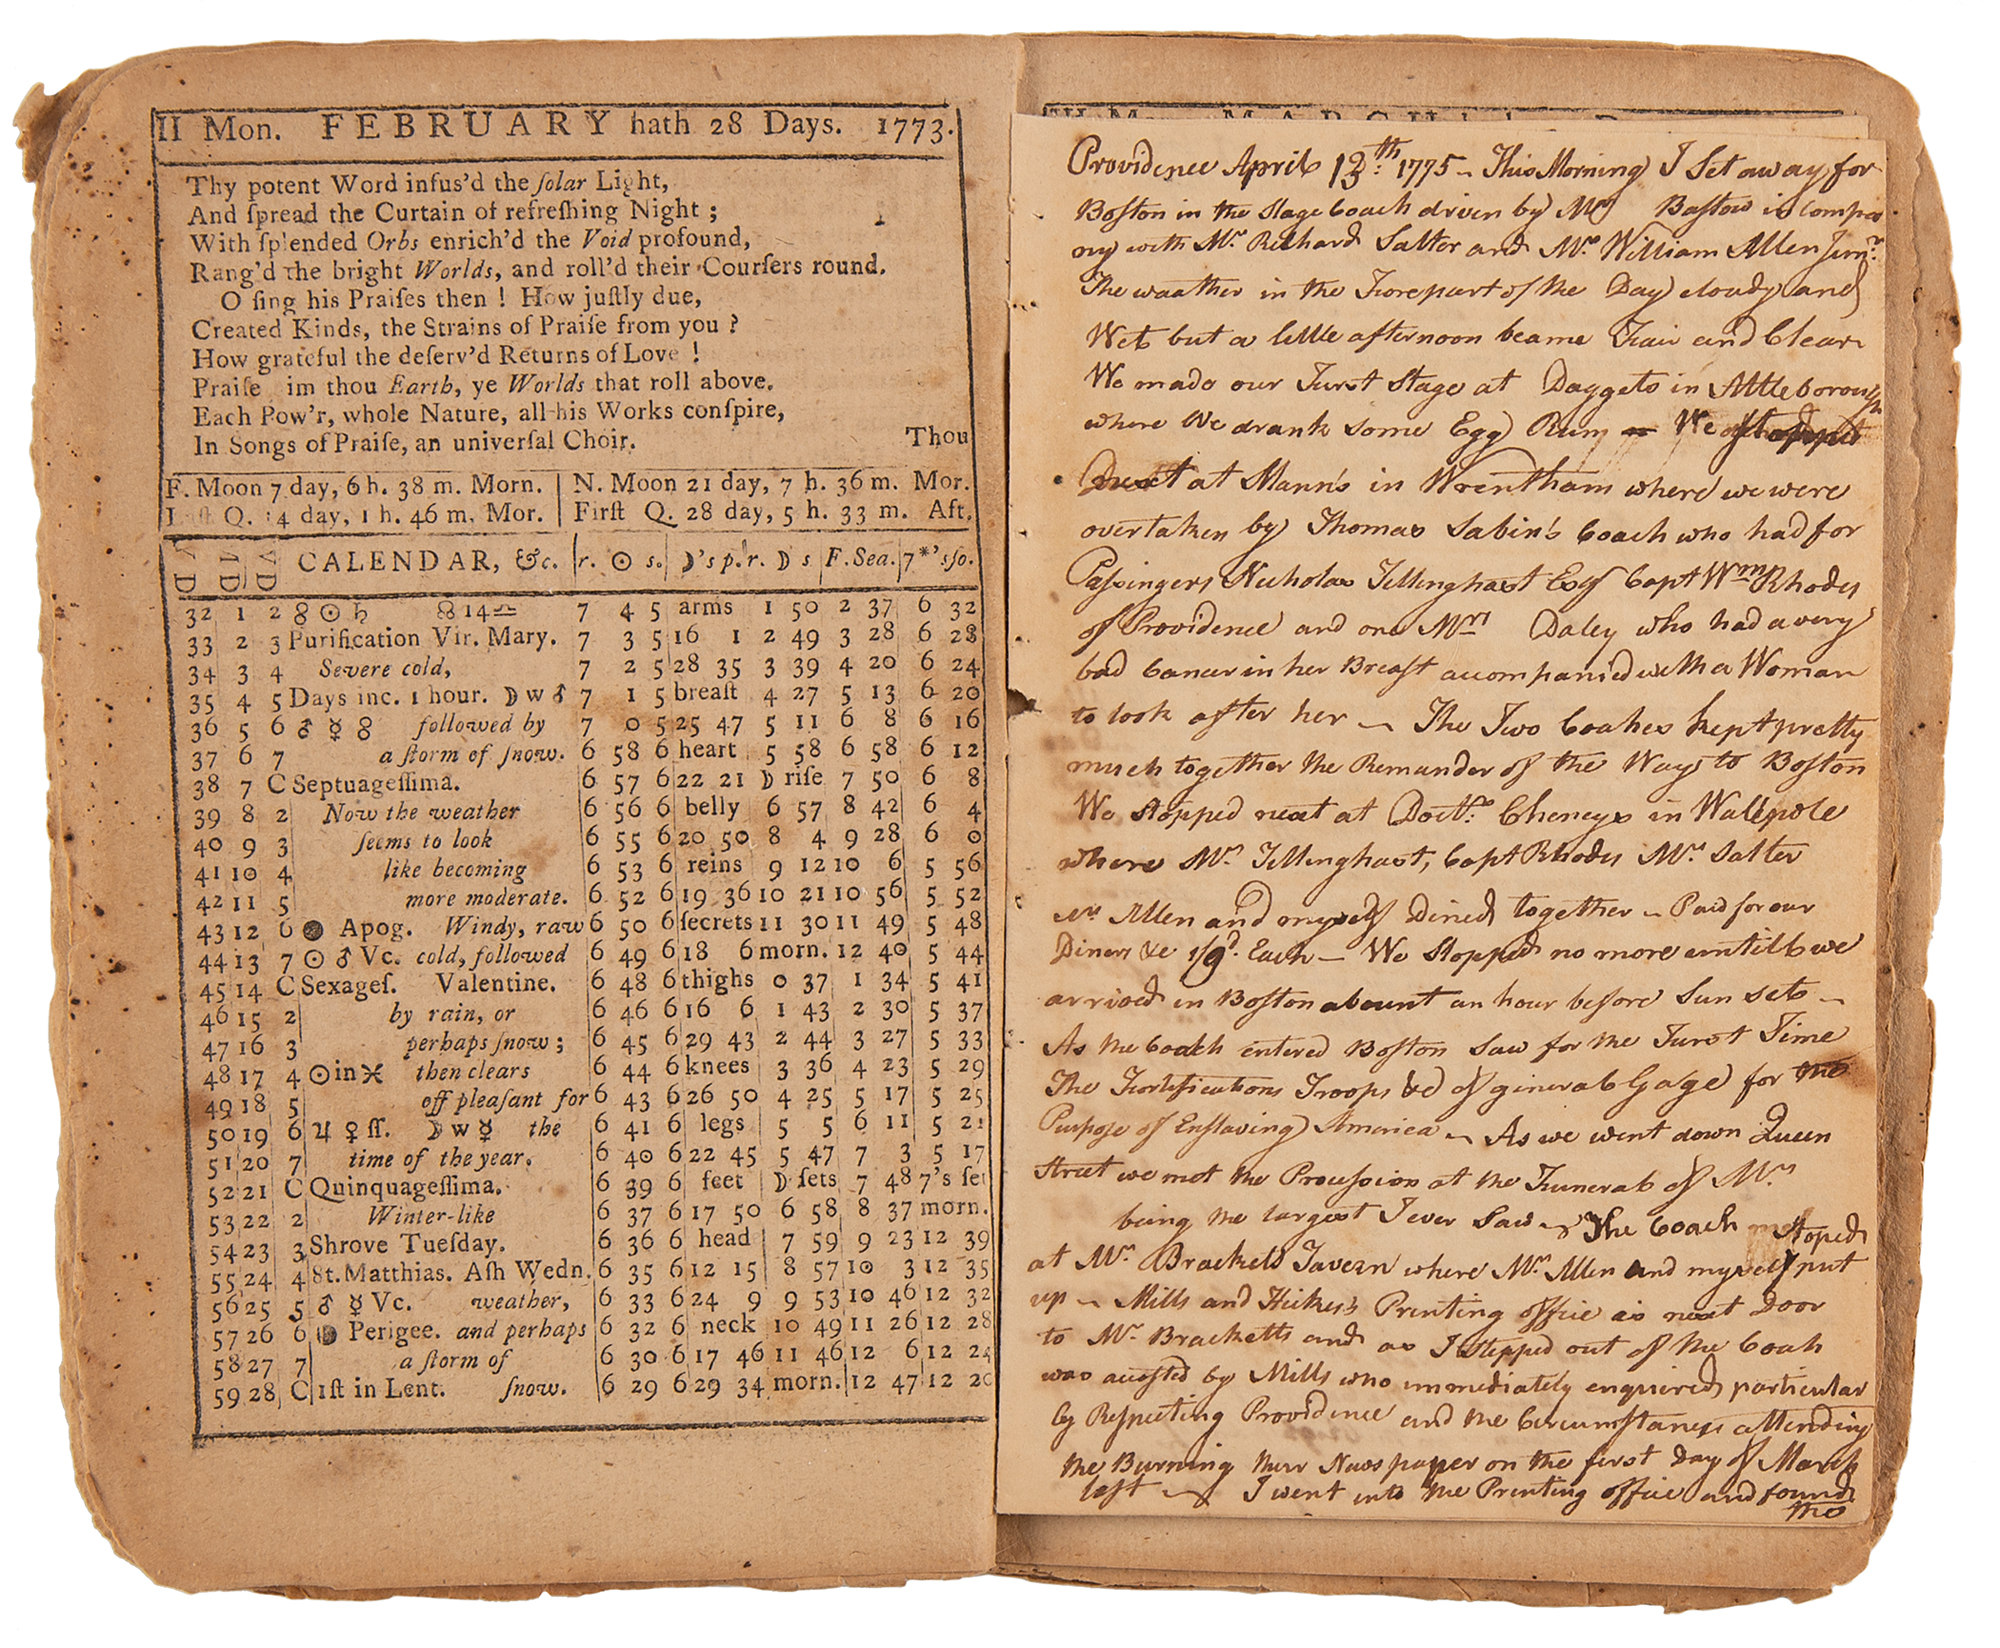 II Mon. FEBRUARY hath 28 Days. 1773.
Thy potent Word infus'd the ſolar Light,
And ſpread the Curtain of refreſhing Night ;
With ſplended Orbs enrich'd the Void profound,
Rang'd the bright Worlds, and roll'd their Courſers round.
O ſing his Praiſes then ! How juſtly due,
Created Kinds, the Strains of Praiſe from you ?
How grateful the deſerv'd Returns of Love !
Praiſe im thou Earth, ye Worlds that roll above.
Each Pow'r, whole Nature, all his Works conſpire,
In Songs of Praiſe, an univerſal Choir. Thou
F. Moon 7 day, 6 h. 38 m. Morn. N. Moon 21 day, 7 h. 36 m. Mor.
Laſt Q. 14 day, 1 h. 46 m. Mor. Firſt Q. 28 day, 5 h. 33 m. Aft.
CALENDAR, &c. r. ☉ s. ☽'s p. r. ☽ s F. Sea. 7*'s ſo.
32 1 2 8 ☉ ♄ ☊ 14 ♎ 7 4 5 arms 1 50 2 37 6 32
33 2 3 Purification Vir. Mary. 7 3 5 16 1 2 49 3 28 6 28
34 3 4 Severe cold, 7 2 5 28 35 3 39 4 20 6 24
35 4 5 Days inc. 1 hour. ☽ w ♂ 7 1 5 breaſt 4 27 5 13 6 20
36 5 6 ♂ ☿ 8 followed by 7 0 5 25 47 5 11 6 8 6 16
37 6 7 a ſtorm of ſnow. 6 58 6 heart 5 58 6 58 6 12
38 7 C Septuageſſima. 6 57 6 22 21 ☽ riſe 7 50 6 8
39 8 2 Now the weather 6 56 6 belly 6 57 8 42 6 4
40 9 3 ſeems to look 6 55 6 20 50 8 4 9 28 6 0
41 10 4 like becoming 6 53 6 reins 9 12 10 6 5 56
42 11 5 more moderate. 6 52 6 19 36 10 21 10 56 5 52
43 12 6 Apog. Windy, raw 6 50 6 ſecrets 11 30 11 49 5 48
44 13 7 ☉ ♂ Vc. cold, followed 6 49 6 18 6 morn. 12 40 5 44
45 14 C Sexageſ. Valentine. 6 48 6 thighs 0 37 1 34 5 41
46 15 2 by rain, or 6 46 6 16 6 1 43 2 30 5 37
47 16 3 perhaps ſnow ; 6 45 6 29 43 2 44 3 27 5 33
48 17 4 ☉ in ♓ then clears 6 44 6 knees 3 36 4 23 5 29
49 18 5 off pleaſant for 6 43 6 26 50 4 25 5 17 5 25
50 19 6 ♃ ♀ ſſ. ☽ w ☿ the 6 41 6 legs 5 5 6 11 5 21
51 20 7 time of the year. 6 40 6 22 45 5 47 7 3 5 17
52 21 C Quinquageſſima. 6 39 6 feet ☽ ſets 7 48 7's ſet
53 22 2 Winter-like 6 37 6 17 50 6 58 8 37 morn.
54 23 3 Shrove Tueſday. 6 36 6 head 7 59 9 23 12 39
55 24 4 St. Matthias. Aſh Wedn. 6 35 6 12 15 8 57 10 3 12 35
56 25 5 ♂ ☿ Vc. weather, 6 33 6 24 9 9 53 10 46 12 32
57 26 6 Perigee. and perhaps 6 32 6 neck 10 49 11 26 12 28
58 27 7 a ſtorm of 6 30 6 17 46 11 46 12 6 12 24
59 28 C 1ſt in Lent. ſnow. 6 29 6 29 34 morn. 12 47 12 20
Providence April 13th 1775 – This Morning I Set away for
Boſton in the Stage Coach driven by Mr Baſtow in Compa
ny with Mr Richard Salter and Mr William Allen Junr.
The waather in the Forepart of the Day cloudy and
Wet but a little afternoon beame Fair and Clear
We made our Furst Stage at Daggets in Attleborough
where We drank some Egg Rum We Stopped
Next at Mann's in Wrentham where we were
overtaken by Thomas Sabin's Coach who had for
Paſsingers Nicholas Tillinghast Esqr Capt Wm Rhodes
of Providence and one Mrs Daley who had a very
bad Cancer in her Breaſt accompanied with a Woman
to look after her – The Two Coahes kept pretty
much together the Remander of the Way to Boſton
We Stopped next at Doctr. Cheneys in Wallpole
where Mr Tillinghast, Capt Rhodes Mr Salter
Mr Allen and myself Dined together – Paid for our
Diners &c 1/9d. Each – We Stopped no more until we
arrived in Boſton about an hour before Sun Set –
As the Coach entered Boſton Saw for the Furst Time
The Fortifications Troops &c of general Gage for the
Purpoſe of Enſlaving America – As we went down Queen
Street we met the Proceſsion at the Funeral of Mrs
being the largest I ever Saw – The Coach Stoped
at Mr Bracketts Tavern where Mr Allen and myself put
up – Mills and Hickes's Printing office is next Door
to Mr Bracketts and as I Stepped out of the Coah
was accosted by Mills who immediately enquired particular
ly Reſpecting Providence and the Circumſtances attending
the Burning their Newspaper on the first Day of March
last – I went into the Printing office and found
the